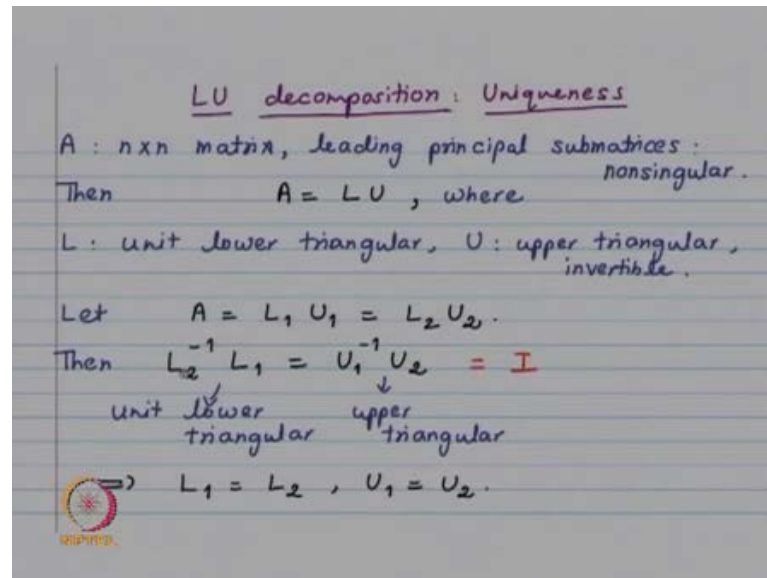 LU decomposition : Uniqueness
A : n×n matrix, leading principal submatrices :
nonsingular.
Then A = LU , where
L : unit lower triangular, U : upper triangular,
invertible.
Let A = L₁ U₁ = L₂ U₂.
Then L₂⁻¹ L₁ = U₁⁻¹ U₂ = I
unit lower triangular upper triangular
⇒ L₁ = L₂ , U₁ = U₂.